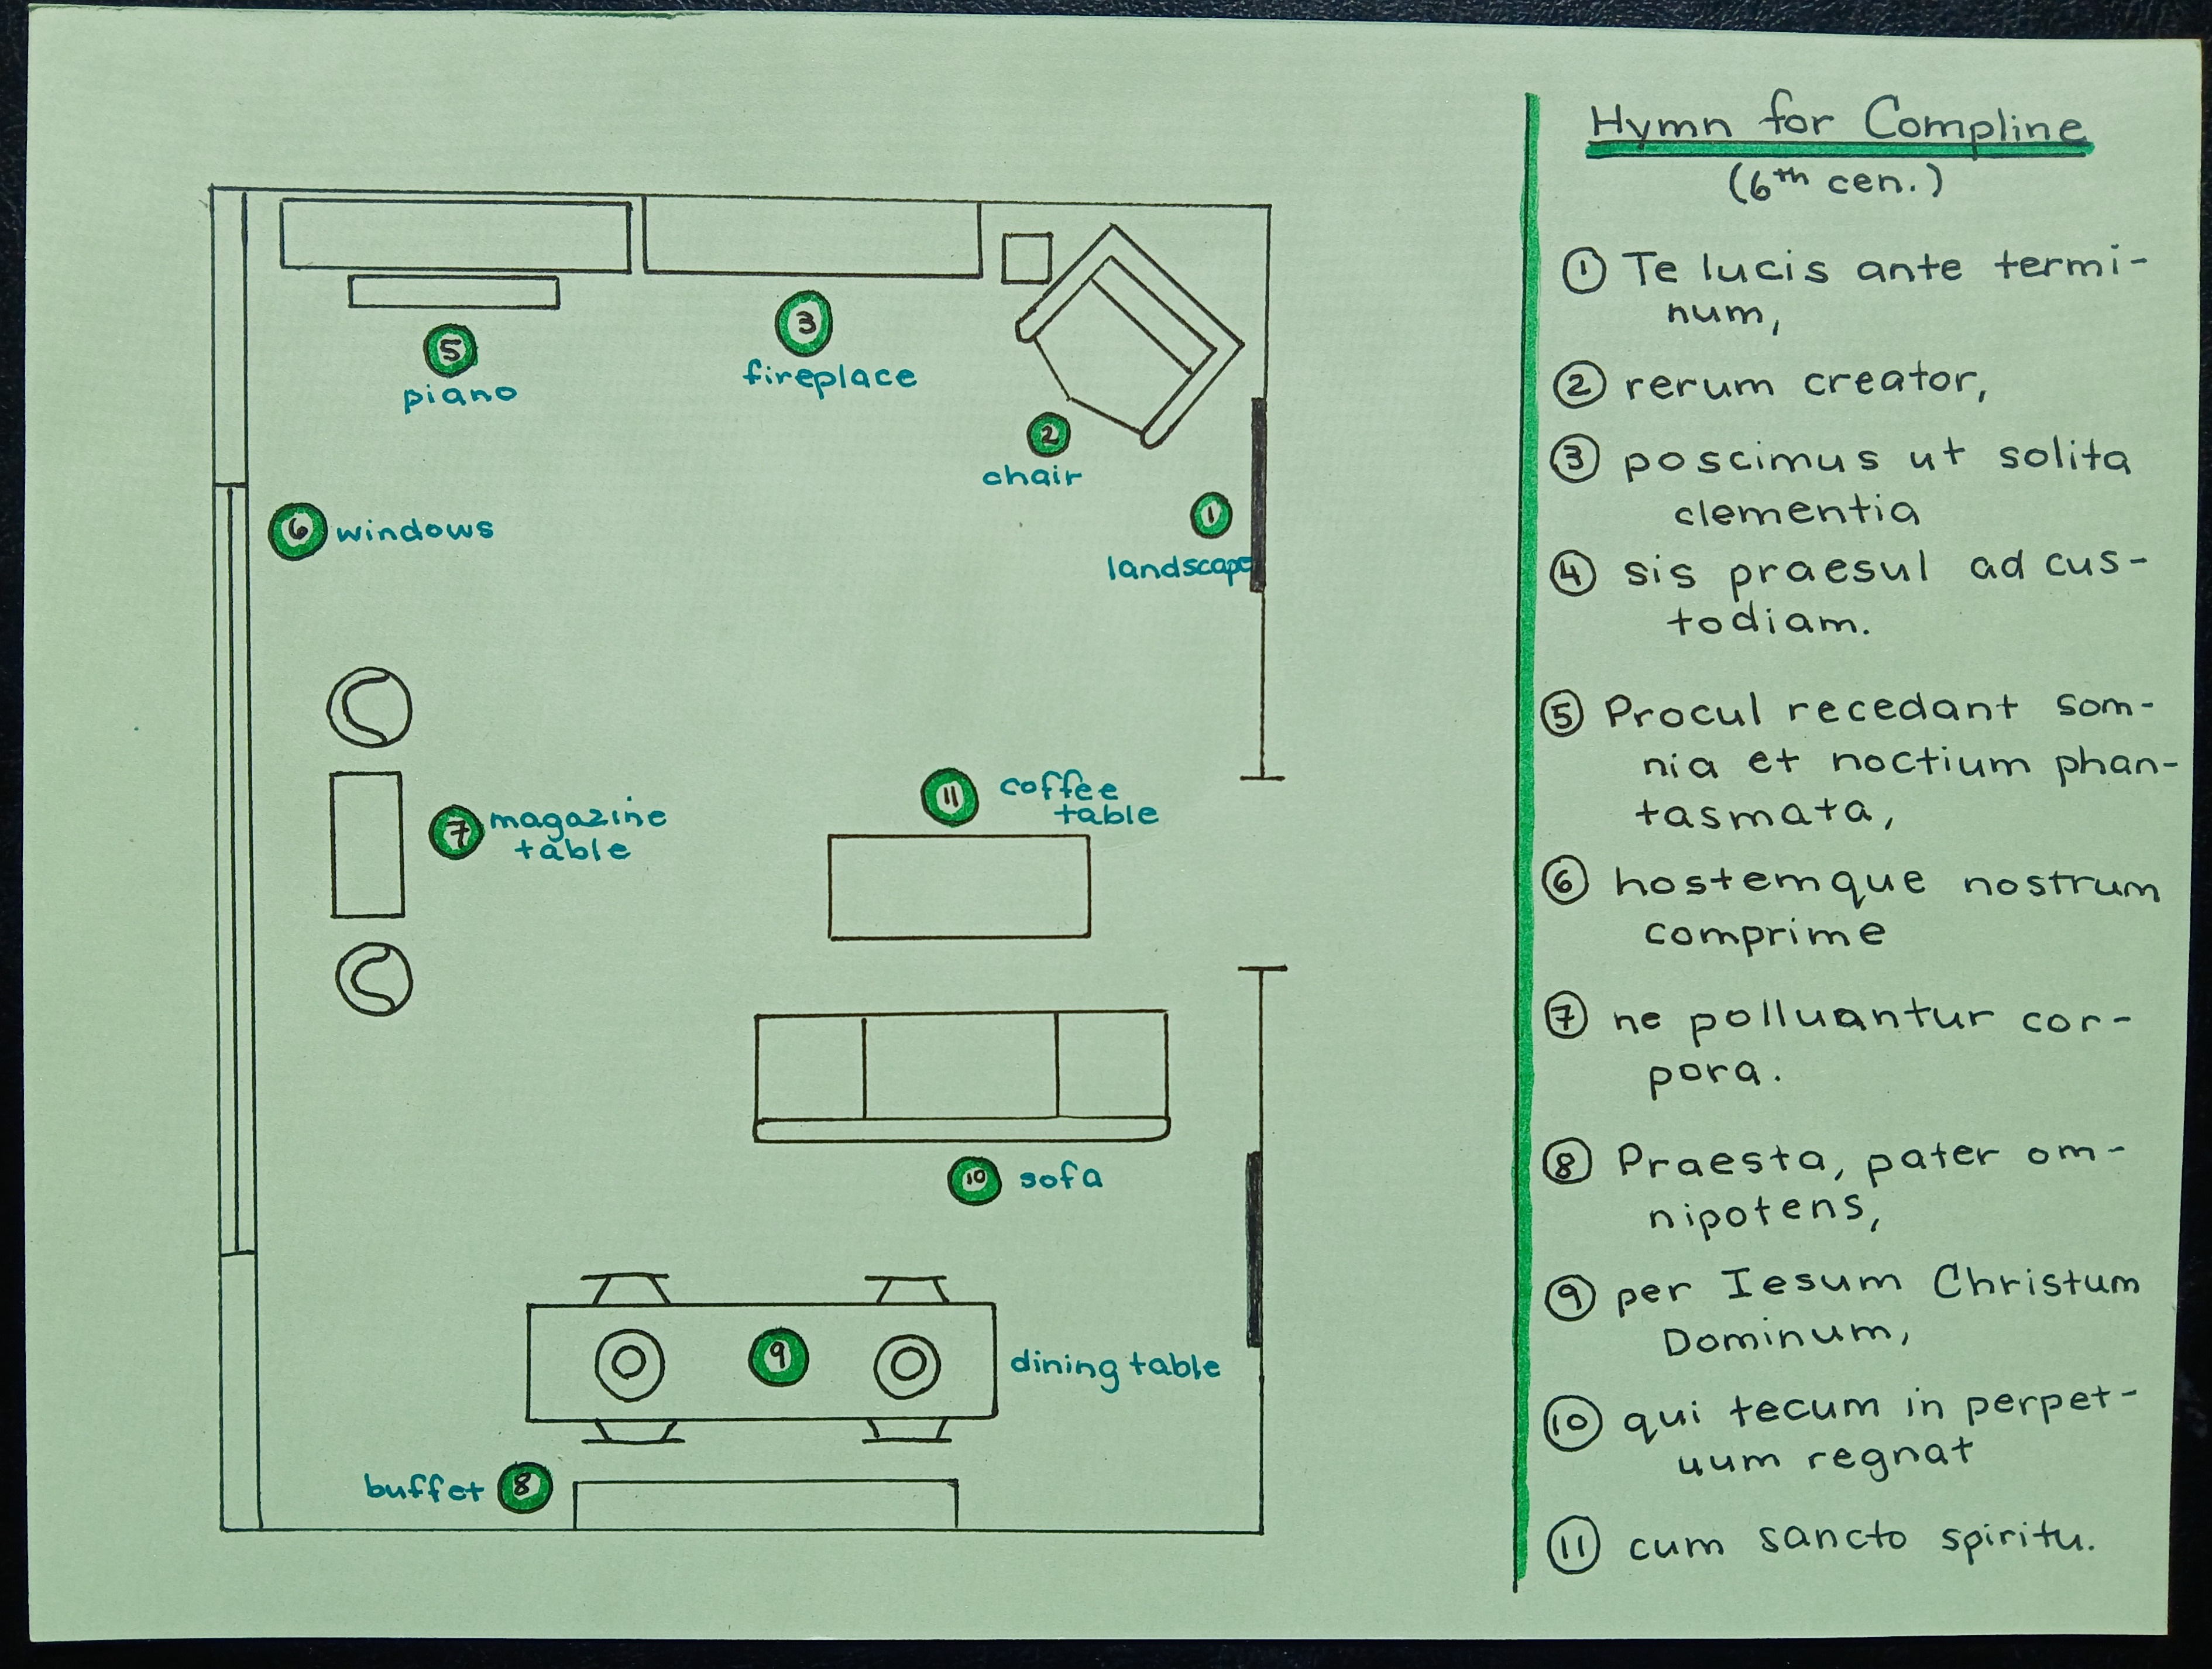 Hymn for Compline
(6th cen.)
① Te lucis ante termi-
num,
② rerum creator,
③ poscimus ut solita
clementia
④ sis praesul ad cus-
todiam.
⑤ Procul recedant som-
nia et noctium phan-
tasmata,
⑥ hostemque nostrum
comprime
⑦ ne polluantur cor-
pora.
⑧ Praesta, pater om-
nipotens,
⑨ per Iesum Christum
Dominum,
⑩ qui tecum in perpet-
uum regnat
⑪ cum sancto spiritu.
5
piano
3
fireplace
2
chair
1
landscape
6 windows
7 magazine
table
11 coffee
table
10 sofa
9 dining table
buffet 8